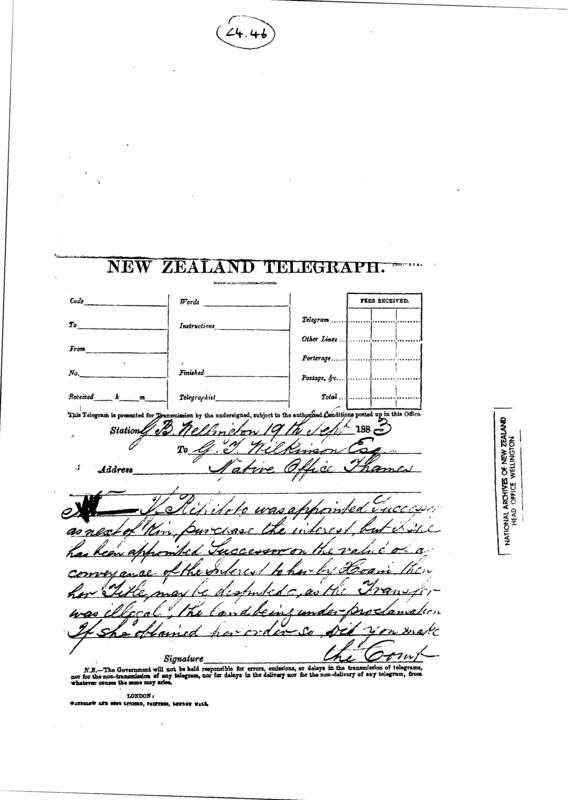 L4.46
NEW ZEALAND TELEGRAPH.
Code
Words
FEES RECEIVED.
To
Instructions
Telegram
Other Lines
From
Porterage
No.
Finished
Postage, &c.
Received h m
Telegraphist
Total
This Telegram is presented for Transmission by the undersigned, subject to the authorized Conditions posted up in this Office
Station G B Wellington 19th Sept 1883
To G. T. Wilkinson Esq
Address Native Office Thames
If was appointed Successor
as next of Kin, purchase the interest, but if she
has been appointed Successor on the of a
conveyance of the Interest to her by Hoani then
her Title may be disputed, as the Transfer
was illegal, the land being under proclamation
If she obtained her order so, did you make
the Court
Signature
N.B.—The Government will not be held responsible for errors, omissions, or delays in the transmission of telegrams,
nor for the non-transmission of any telegram, nor for delays in the delivery nor for the non-delivery of any telegram, from
whatever causes the same may arise.
LONDON:
WATERLOW AND SONS LIMITED, PRINTERS, LONDON WALL.
NATIONAL ARCHIVES OF NEW ZEALAND
HEAD OFFICE WELLINGTON